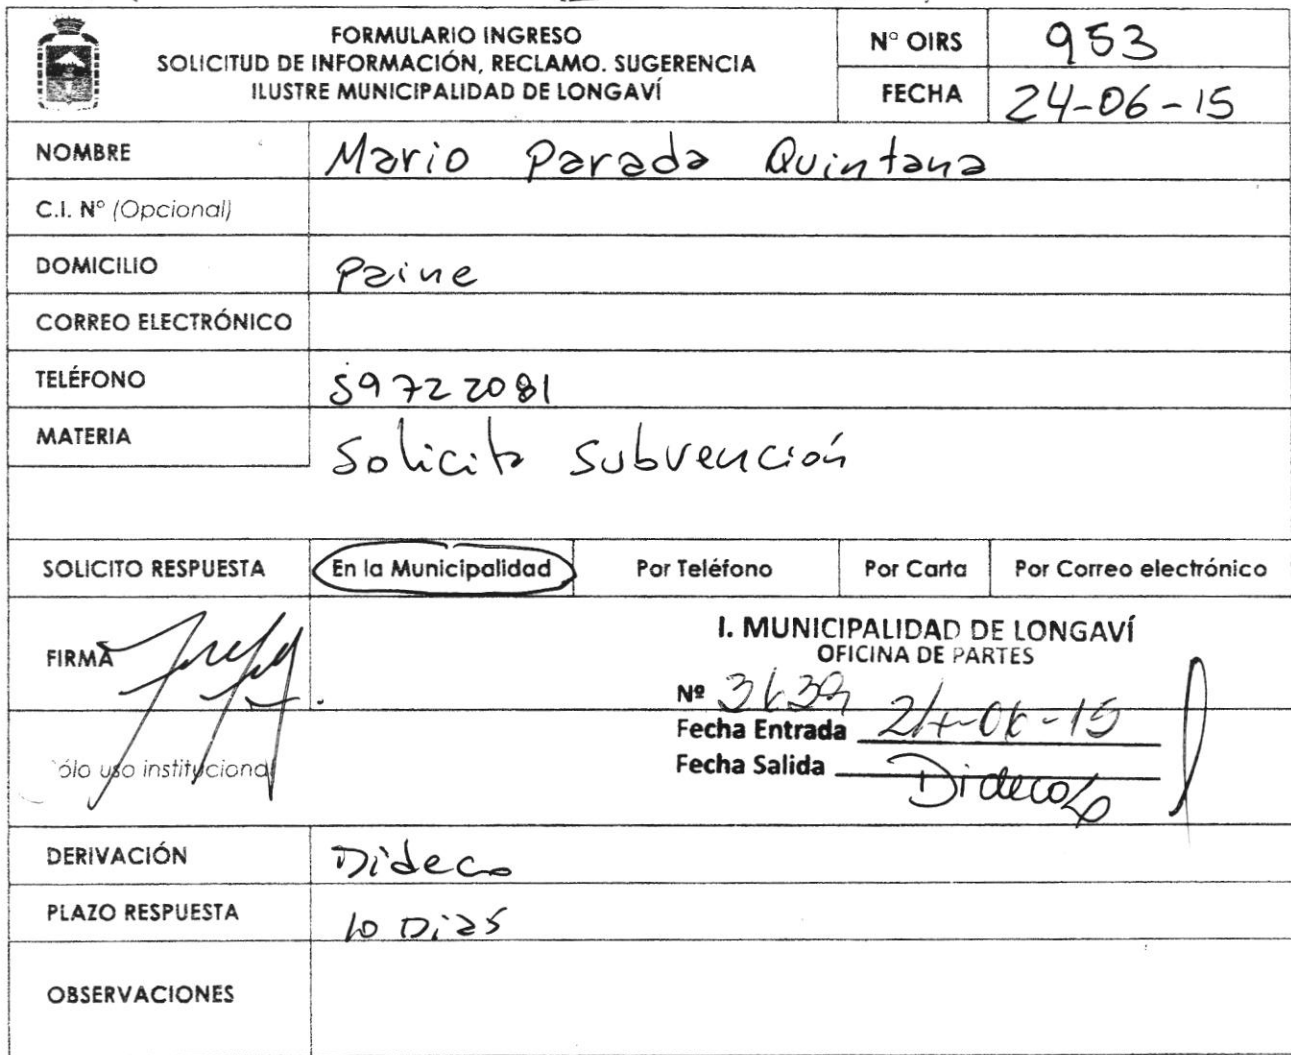 FORMULARIO INGRESO
SOLICITUD DE INFORMACIÓN, RECLAMO. SUGERENCIA
ILUSTRE MUNICIPALIDAD DE LONGAVÍ
N° OIRS 953
FECHA 24-06-15
NOMBRE Mario Parada Quintana
C.I. N° (Opcional)
DOMICILIO Paine
CORREO ELECTRÓNICO
TELÉFONO 59722081
MATERIA Solicita Subvención
SOLICITO RESPUESTA En la Municipalidad Por Teléfono Por Carta Por Correo electrónico
FIRMA
I. MUNICIPALIDAD DE LONGAVÍ
OFICINA DE PARTES
Nº 3639
Fecha Entrada 24-06-15
Fecha Salida
Dideco
ólo uso institucional
DERIVACIÓN Dideco
PLAZO RESPUESTA 10 Dias
OBSERVACIONES